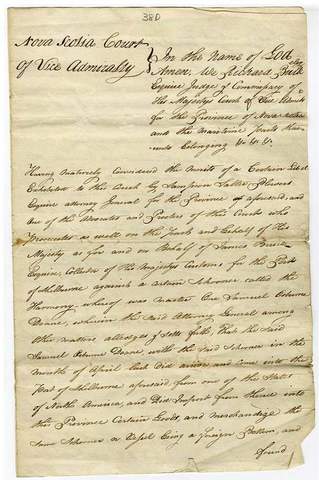 380
Nova Scotia Court
Of Vice Admiralty
In the Name of God
Amen. We Richard
Esquire Judge & Commissary of
His Majestys Court of Vice Admiralty
for the Province of Nova Scotia
and the Maritime parts there
unto belonging &c &c &c.
Having maturely considered the merits of a Certain Libel
Exhibited to this Court by Sampson Salter Blowers
Esquire attorney General for the Province aforesaid, and
One of the Advocates and Proctors of this Court who
Prosecutes as well on the part and behalf of His
Majesty as for and on Behalf of James Bruce
Esquire, Collector of His Majestys Customs for the Port
of Shelburne against a certain Schooner called the
Harmony whereof was master One Samuel Osburne
Doane, wherein the said Attorney General among
other matters alledges & setts forth, That the said
Samuel Osburne Doane with the said Schooner in the
month of April last Did arrive and come into the
Port of Shelburne aforesaid, from one of the States
of North America, and Did Import from thence into
this Province Certain Goods, and merchandize the
same Schooner a Vessel being a foreign Bottom, and
found